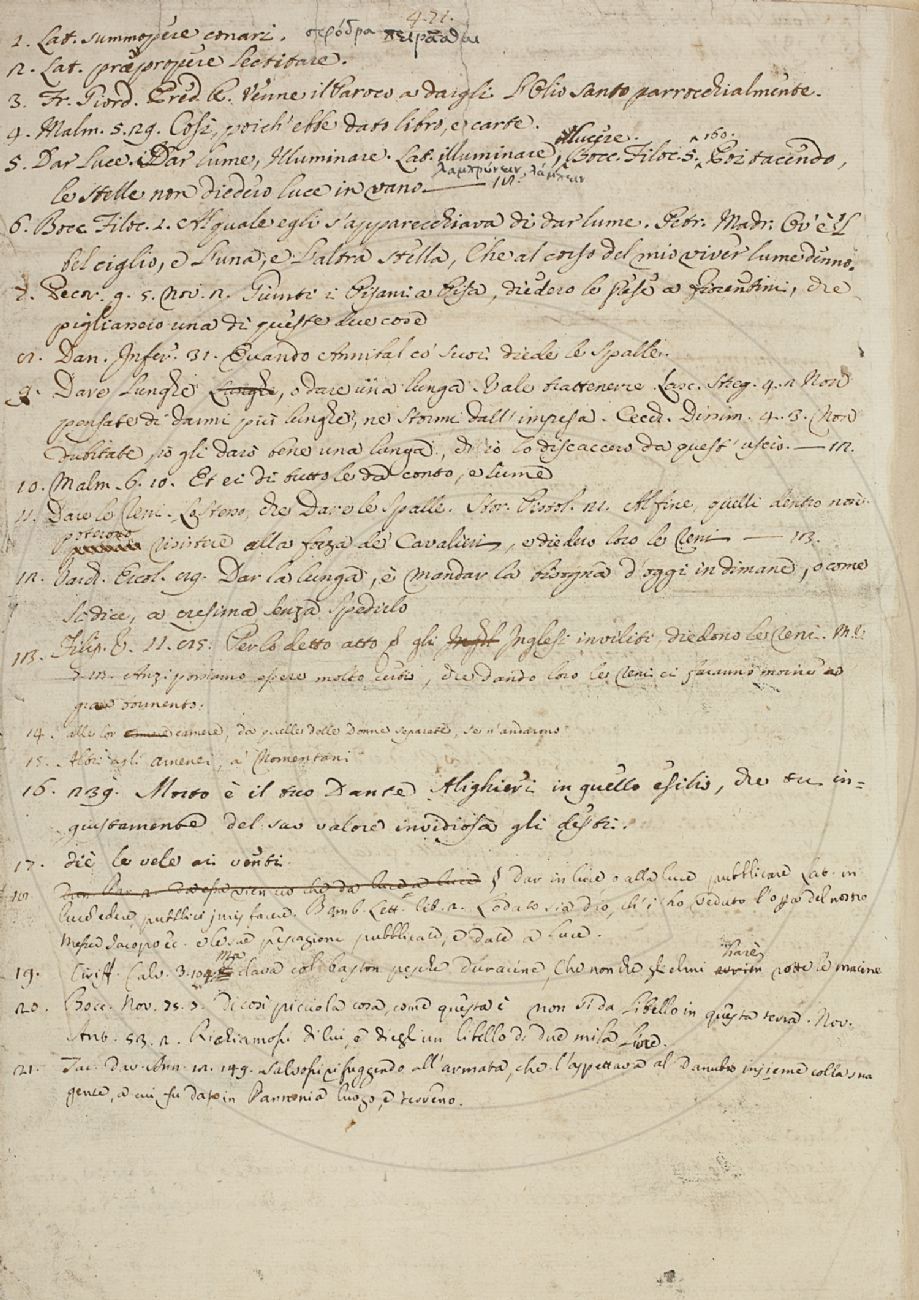 421.
1. Lat. summopere conari. σφόδρα πειρᾶσθαι
2. Lat. præpropere lectitare.
3. Fr. Giord. Pred. R. Venne il Paroco a dargli l'Olio santo parrocchialmente.
4. Malm. 5. 29. Così, poich'ebbe dato libro, e carte.
5. Dar Luce. Dar lume, Illuminare. Lat. illuminare, illucere. Bocc. Filoc. 5. 160. Poi tacendo,
λαμπρύνειν, λάμπειν
le stelle non diedero luce in vano
6. Bocc. Filoc. 2. Al quale egli s'apparecchiava di dar lume. Petr. Madr. Ov'è il
bel ciglio, e l'una, e l'altra stella, Che al corso del mio viver lume denno.
7. Pecor. g. 5. Nov. 2. Giunti i Pisani a Pisa, diedero le prese a fiorentini, che
pigliassero una di queste due cose
8. Dan. Infer. 31. Quando Annibal co' suoi diede le spalle.
9. Dare Lunghe, o dare una lunga. Vale trattenere. Lasc. Streg. 4. 2 Non
pensate di darmi più lunghe, ne stormi dall'impresa. Cecch. Dissim. 4. 3. Non
dubitate io gli darò bene una lunga, ch'io lo discaccerò da quest'uscio. — 12.
10. Malm. 6. 10. Et ei di tutto le dà conto, e lume
11. Dare le Reni. Lo stesso, che Dare le spalle. Stor. Pistol. 21. Al fine, quelli dentro non
poterono resistere alla forza de' Cavalieri, e diedero loro le Reni — 13.
12. Vard. Ercol. 89. Dar la lunga, è mandar la bisogna d'oggi in dimane, o come
si dice, a cresima senza spedirlo
13. Filip. V. 11. 85. Per lo detto atto gli Inglesi inviliti diedono le Reni. M. V.
7. 12. Anzi possiamo essere molto certi, che dando loro le Reni ci faranno morire a
gran tormento.
14. alle lor camere, da quelle delle Donne separate, se n'andarono
15. Altri agli amenei, a' Nomentani
16. 239. Morto è il tuo Dante Alighieri in quello esilio, che tu in=
giustamente del suo valore invidiosa gli desti.
17. diè le vele ai venti
18. § dar in luce o alla luce pubblicare Lat. in
lucem edere, publici juris facere. Bemb. Lett. lib. 2. Lodato sia dio, ch'i ho veduto l'opra del nostro
Messer Jacopo &c. e le sue pregazione pubblicate, e date a luce.
19. Ciriff. Calv. 3. 104. Ma dava col baston pesche duracine, Che non che gli elmi harè rotte le macine
20. Bocc. Nov. 75. 7. Di così picciola cosa, come questa è non si da libello in questa terra. Nov.
Ant. 53. 2. Richiamossi di lui, e diegli un libello di due mila lire.
21. Tac. Dav. Ann. 12. 149. salvossi rifuggendo all'armata, che l'aspettava al Danubio insieme colla sua
gente, a cui fu dato in Pannonia luogo, e terreno.